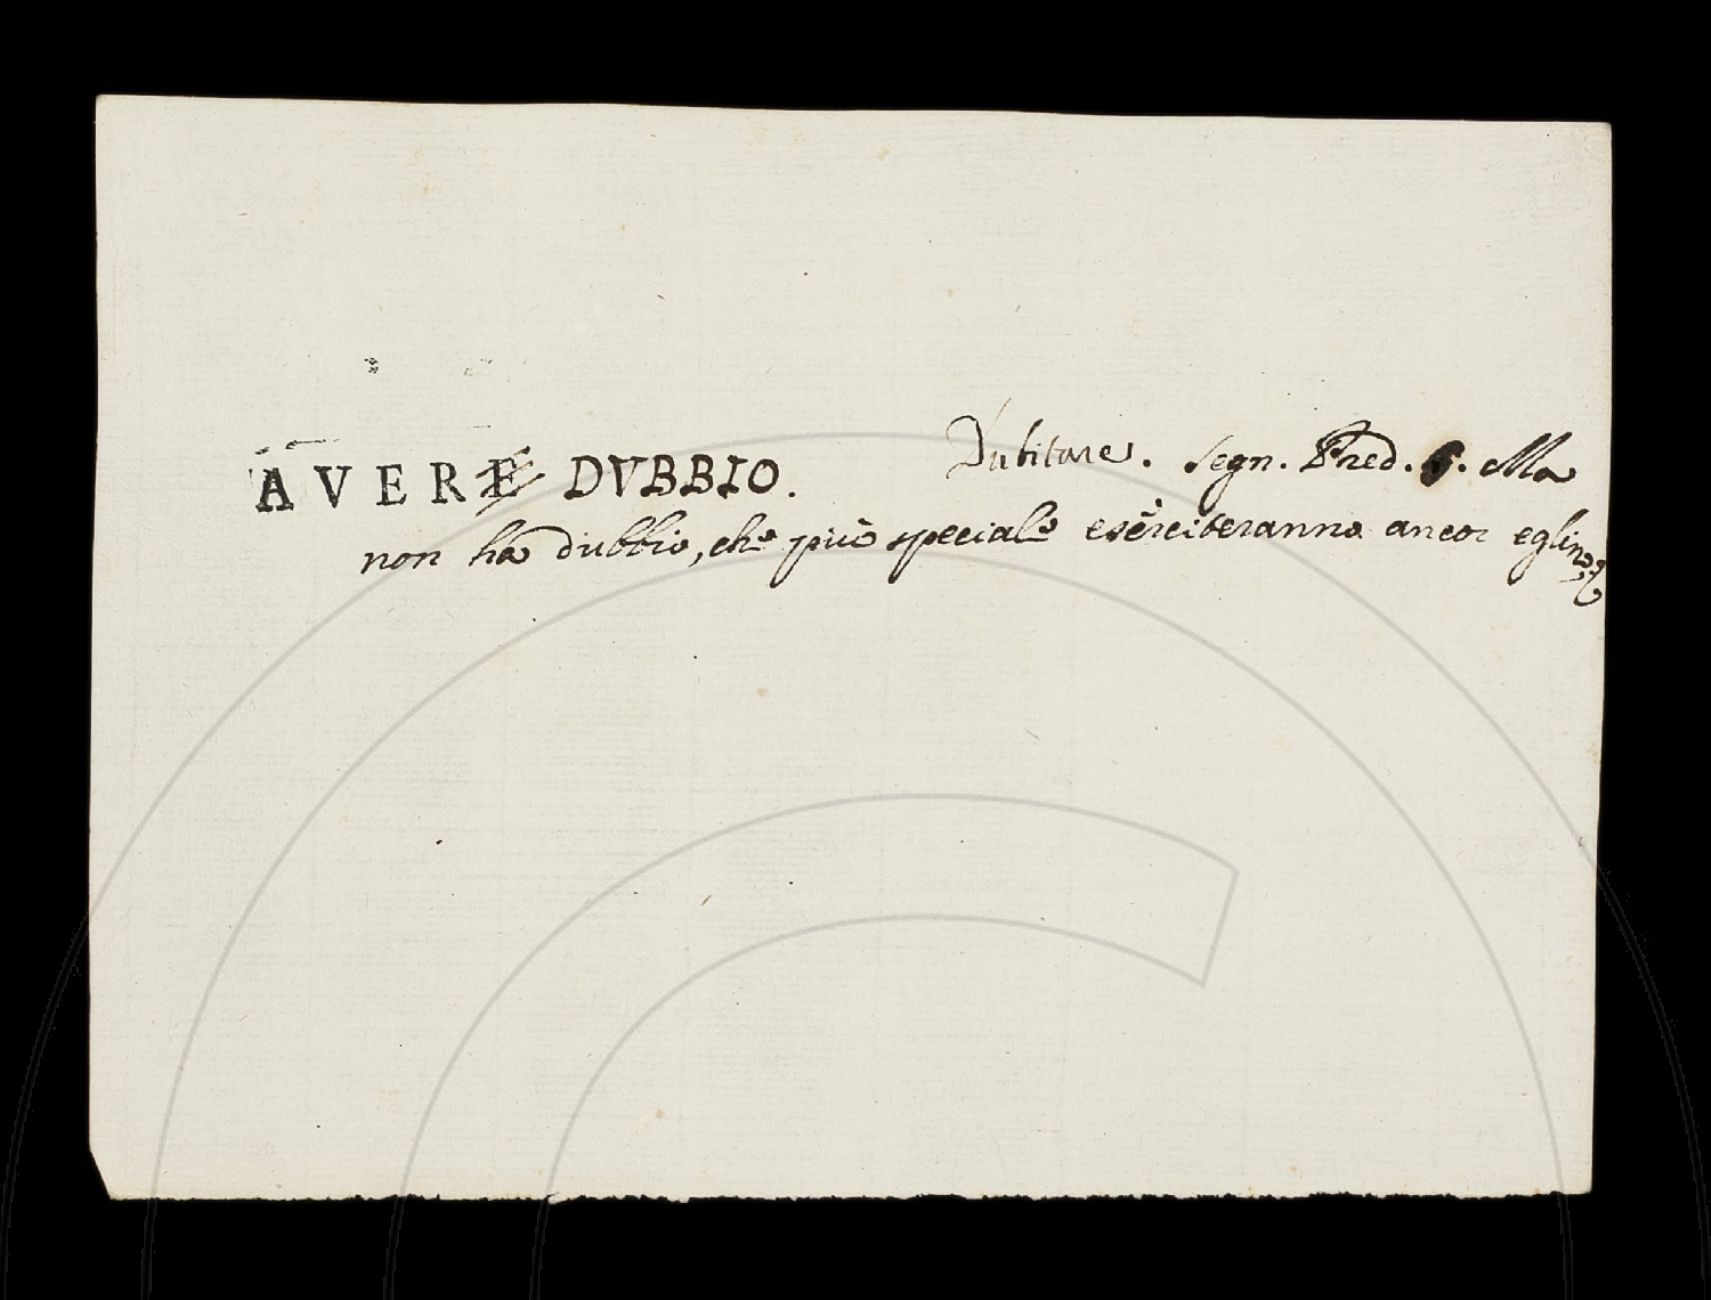 AVERE DVBBIO. Dubitare. Segn. Pred. Ma
non ha dubbio, che più speciale eserciteranno ancor eglino